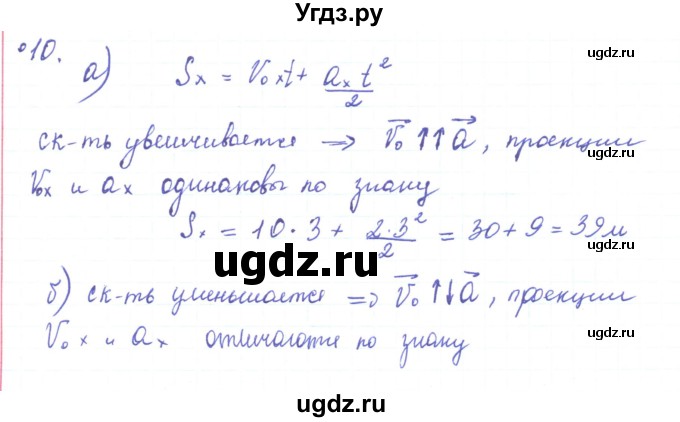 Угдз.ру
ugdz.ru
№10.
а) Sx = V₀xt + axt²/2
ugdz.ru
ск-ть увеличивается => V₀↑↑a, проекции
V₀x и ax одинаковы по знаку
ugdz.ru
Sx = 10·3 + 2·3²/2 = 30 + 9 = 39м
ugdz.ru
б) ск-ть уменьшается => V₀↑↓a, проекции
V₀x и ax отличаются по знаку
ugdz.ru
ugdz.ru
ugdz.ru